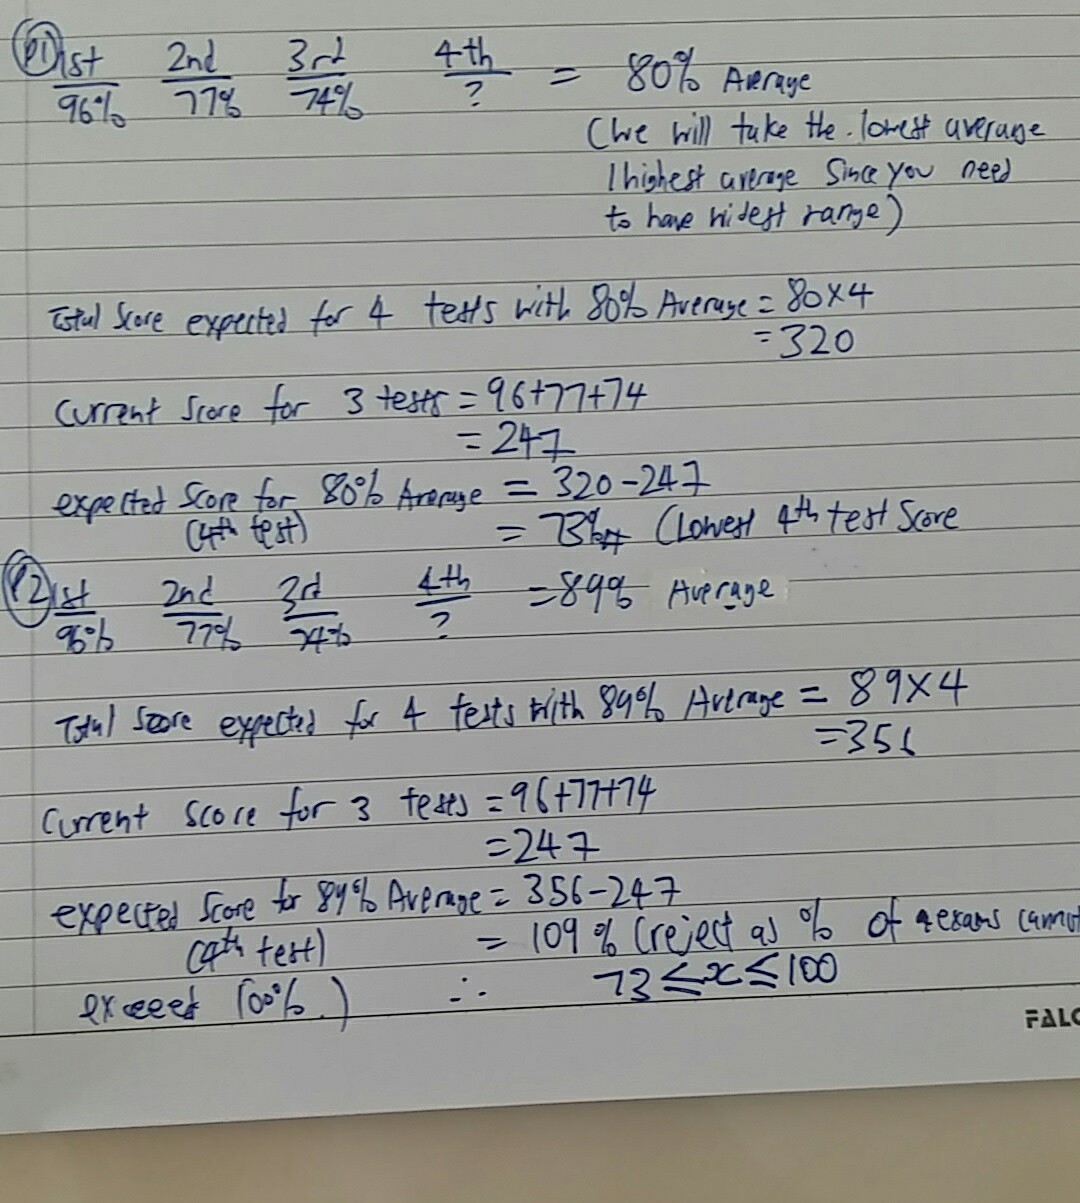 P1) 1st 2nd 3rd 4th = 80% Average
96% 77% 74% ?
(We will take the lowest average
/highest average since you need
to have widest range)
Total Score expected for 4 tests with 80% Average = 80×4
=320
Current Score for 3 tests = 96+77+74
= 247
expected Score for 80% Average = 320-247
(4th test) = 73% (Lowest 4th test Score
P2) 1st 2nd 3rd 4th =89% Average
96% 77% 74% ?
Total Score expected for 4 tests with 89% Average = 89×4
=356
Current Score for 3 tests =96+77+74
=247
expected Score for 89% Average = 356-247
(4th test) = 109% (reject as % of exams cannot
exceed 100%.) ∴ 73≤x≤100
FALC